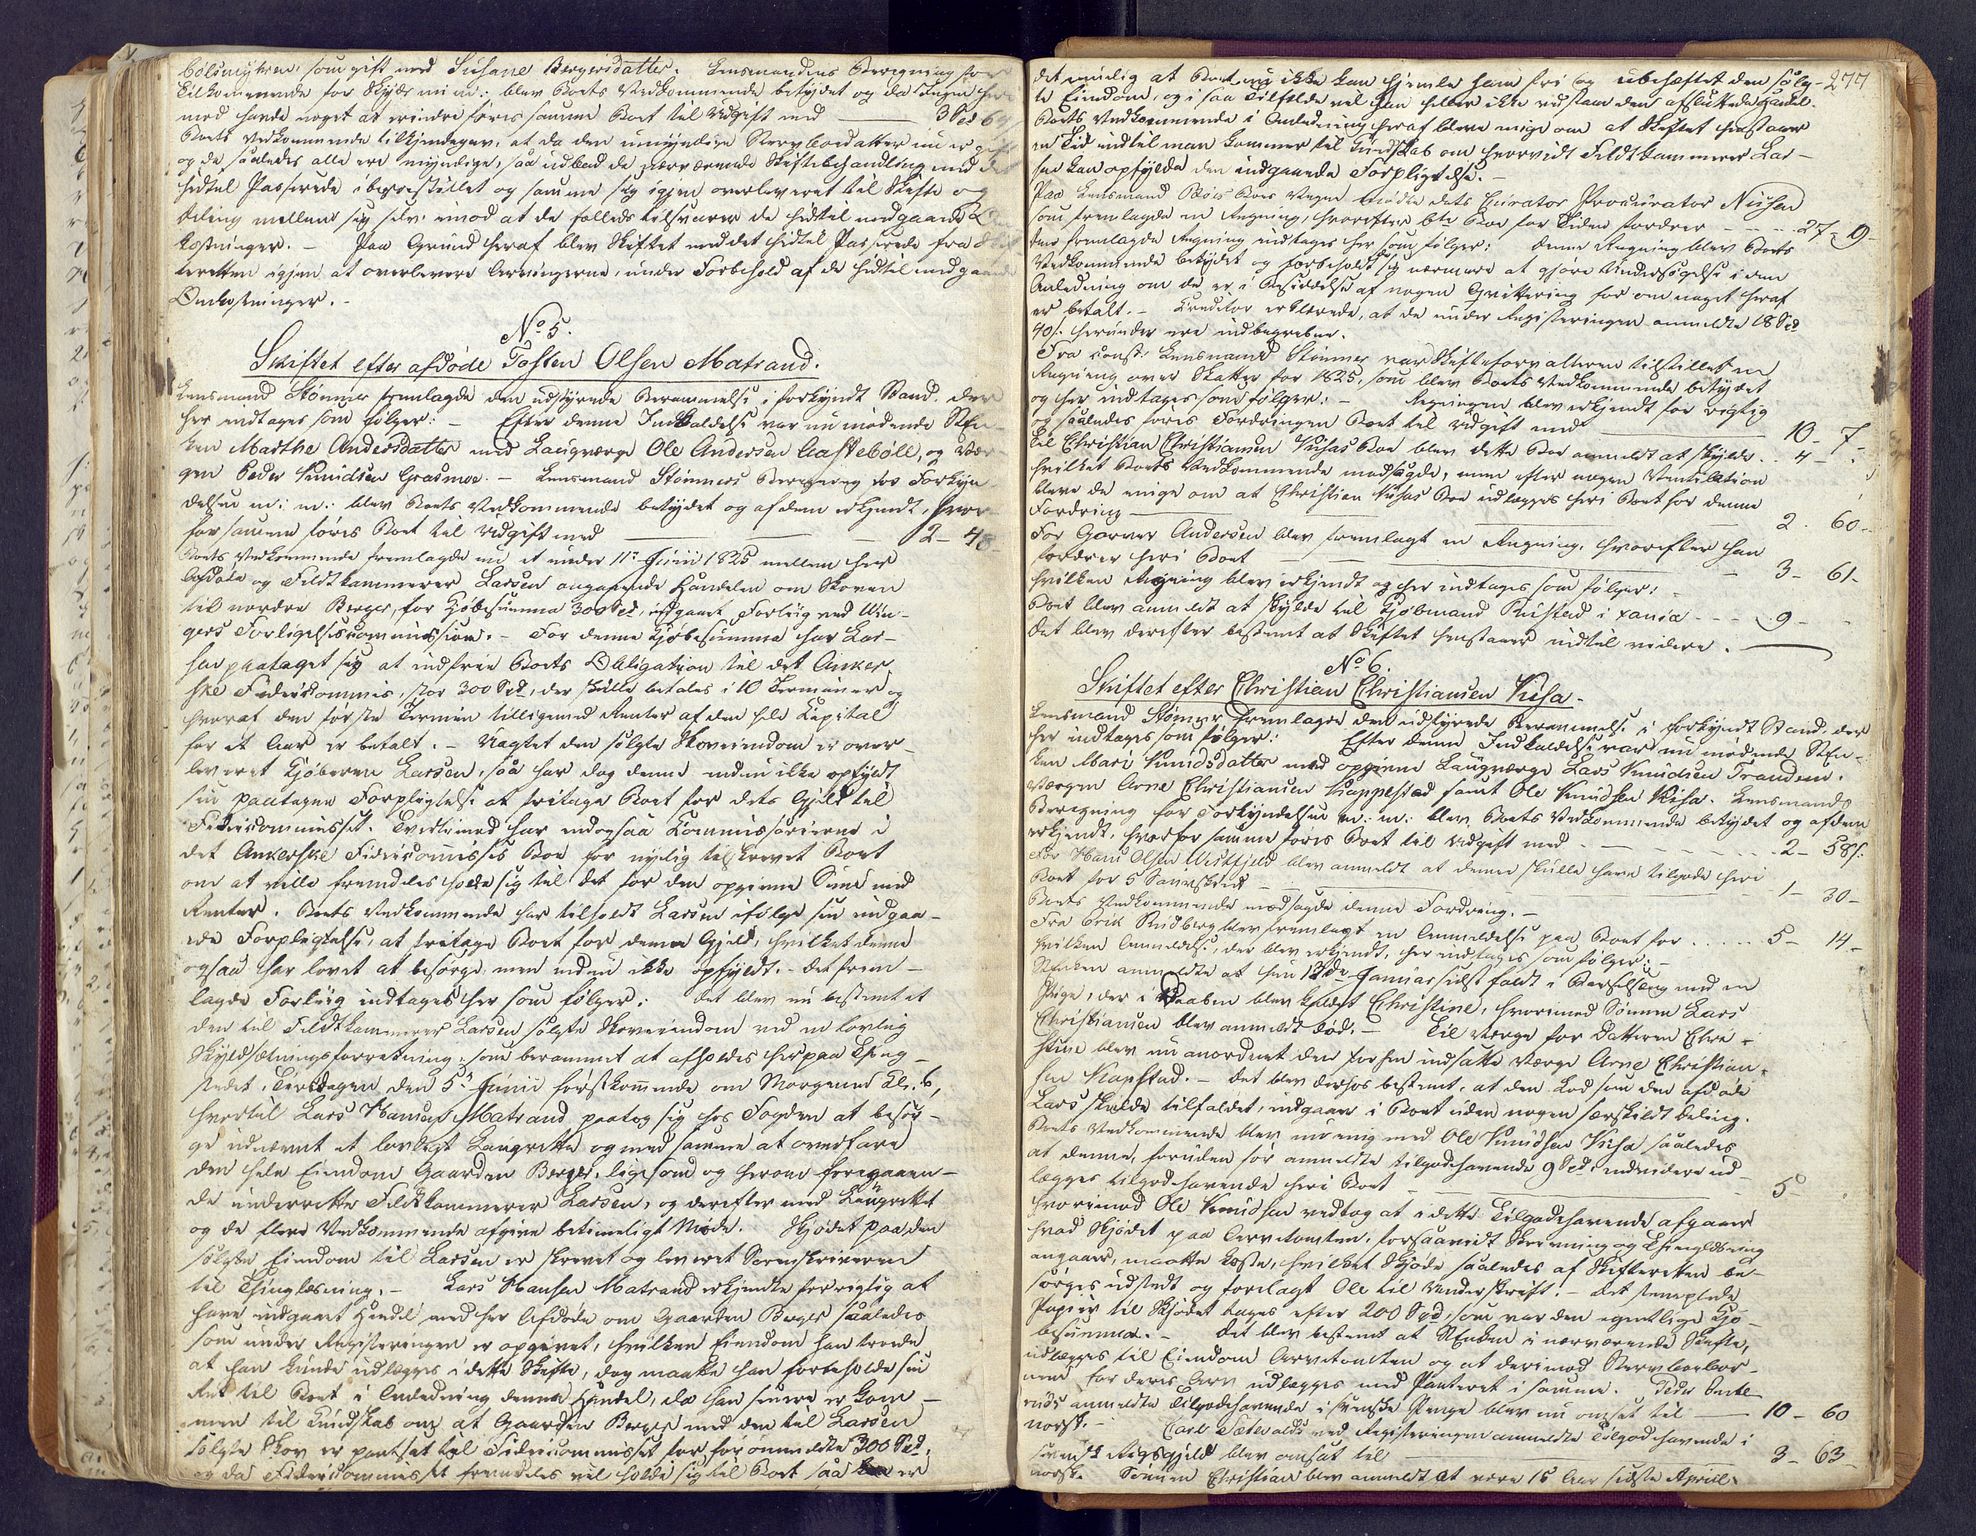 bölsmyhren, som gift med Susane Bergersdatter. Lensmandens Beregning for
Tilkommende for Skyds m: m: blev Boets Vedkommende betydet og da Ingen her
mod havde noget at erindre föres samme Boet til Udgift med 3 Spd 64
Boets Vedkommende tilkjendegav, at da den umyndige Stervboedatter nu er gift
og de saaledes alle ere myndige, saa udbad de nærværende Skiftebehandling med det
hidtil Passerede iberoestillet og samme sig igjen overleveret til Skifte og
Deling mellem sig selv imod at de fælleds tilsvarer de hidtil medgaaede Om
kostninger. - Paa Grund heraf blev Skiftet med det hidtil Passerede fra Skif
teretten igjen at overlevere Arvingerne, under Forbehold af de hidtil medgaaede
Omkostninger. -
No 5.
Skiftet efter afdöde Tosten Olsen Matrand.
Lensmand Stömner fremlagde den udstyrede Berammelse i forkyndt Stand, der
her indtages som fölger: - Efter denne Indkaldelse var nu mödende En-
ken Marthe Andersdatter med Laugværge Ole Andersen Aastebøll, og Vær-
gen Peder Knudsen Grasmoe. - Lensmand Stömners Beregning for Forkyn-
delsen m: m: blev Boets Vedkommende betydet og af dem erkjendt, hvor-
for samme föres Boet til Udgift med 2 - 48
Boets Vedkommende fremlagde nu et under 11te Junii 1825 mellem her
Afdöde og Feldtkammerer Larsen angaaende Handelen om Skoven
til nordre Berger, for Kjöbesumma 300 Spd, indgaaet Forliig ved Vin-
gers Forligelsescommission. - For denne Kjöbesumma har Lar-
sen paataget sig at indfrie Boets Obligation til det Anker
ske Fideicommis, stor 300 Spd, der skulle betales i 10 Terminer og
hvoraf den förste Termin tilligemed Renter af den hele Kapital
for et Aar er betalt. - Uagtet den solgte Skoveiendom er over-
leveret Kjöberen Larsen, saa har dog denne endnu ikke opfyldt
sin paatagne Forpligtelse at fritage Boet for dets Gjeld til
Fideicommisset. Tvertimod har endogsaa Commissarierne i
det Ankerske Fideicommisses Boe for nylig tilskrevet Boet
om at ville fremdeles holde sig til det for den opgivne Sum med
Renter. Boets Vedkommende har tilholdt Larsen ifölge sin indgaa-
ede Forpligtelse, at fritage Boet for denne Gjeld, hvilket denne
ogsaa har lovet at besörge, men endnu ikke opfyldt. - Det frem-
lagde Forliig indtages her som fölger: Det blev nu bestemt at
den til Feldtkammerer Larsen solgte Skoveiendom ved en lovlig
Skyldsætningsforretning, som berammet at afholdes her paa Thing-
stedet, Tirsdagen den 5te Junii förstkommende om Morgenen Kl. 6,
hvortil Lars Hansen Matrand paatog sig hos Fogden at besör-
ge udnævnt et lovligt Laugrette og med samme at overfare
den hele Eiendom Gaarden Berger, ligesom og herom foregaaen-
de underrette Feldtkammerer Larsen, og derefter med Laugrettet
og de flere Vedkommende afgive betimeligt Möde. Skjödet paa den
solgte Eiendom til Larsen er skrevet og leveret Sorenskriveren
til Thinglæsning. - Lars Hansen Matrand erkjendte for rigtig at
have indgaaet Handel med her Afdöde om Gaarden Berger saaledes
som under Registeringen er opgivet, hvilken Eiendom han troede
at han kunde udlægges i dette Skifte, dog maatte han forbeholde sin
Ret til Boet i Anledning denne Handel, da han senere er kom-
men til Kundskab om, at Gaarden Berger med den til Larsen
solgte Skov er pantsat til Fideicommisset for foranmeldte 300 Spd,
og da Fideicommisset fremdeles vil holde sig til Boet saa er
277
det muelig at Boet nu ikke kan hjemle ham fri og ubehæftet den solg-
te Eiendom, og i saa Tilfælde vil han heller ikke vedstaae den afsluttede Handel.
Boets Vedkommende i Anledning heraf bleve enige om at Skiftet henstaaer
en Tid indtil man kommer til Kundskab om hvorvidt Feldtkammerer Lar-
sen kan opfylde den indgaaede Forpligtelse. -
Paa Lensmand Boes Vegne mödte dets Curator Procurator Nilsen
som fremlagde en Regning, hvorefter bte Boe for Tiden fordrer 27 - 9 -
den fremlagde Regning indtages her som fölger: denne Regning blev Boets
Vedkommende betydet og forbeholdt sig nærmere at gjöre Undersögelse i den
Anledning om de er i Besiddelse af nogen Qvittering for om noget heraf
er betalt. - Creditor erklærede, at de under Registeringen anmeldte 18 Spd
40 s. herunder ere indbegrebne.
Fra const: Lensmand Stömner var Skifteforvalteren tilstillet en
Regning over Skatter for 1825, som blev Boets Vedkommende betydet
og her indtages som fölger: - Regningen blev erkjendt for rigtig
og saaledes föres Fordringen Boet til Udgift med 10 - 7 -
Til Christian Christiansen Kusas Boe blev dette Boe anmeldt at skylde 4
hvilket Boets Vedkommende modsagde, men efter nogen Ventilation
bleve de enige om at Christian Kusas Boe udlægges heri Boet for denne
Fordring 2. 60 -
For Garver Andersen blev fremlagt en Regning, hvorefter han
fordrer heri Boet 3 - 61 -
hvilken Regning blev erkjendt og her indtages som fölger:
Boet blev anmeldt at skylde til Kjöbmand Kiistad i xania 9 -
det blev derefter bestemt at Skiftet henstaaer indtil videre.
No 6.
Skiftet efter Christian Christiansen Kusa -
Lensmand Stömner fremlagde den udstyrede Berammelse i forkyndt Stand, der
her indtages som fölger: Efter denne Indkaldelse var nu mödende En-
ken Mari Knudsdatter med opgivne Laugværge Lars Knudsen Trandem.
Værgen Arne Christiansen Kappestad samt Ole Knudsen Kusa. Lensmands
Beregning for Forkyndelsen m: m: blev Boets Vedkommende betydet og af dem
erkjendt, hvorfor samme föres Boet til Udgift med 2 - 58 s.
For Hans Olsen Westfjeld blev anmeldt at denne skulle have tilgode heri
Boet for 5 1 - 30 -
Boets Vedkommende modsagde denne Fordring. -
Fra Erik Rudberg blev fremlagt en Anmeldelse paa Boet for 5 - 14 -
hvilken Anmeldelse, der blev erkjendt, her indtages som fölger: -
Enken anmeldte at hun 12de Januar sidst faldt i Barselseng med en
Pige, der i Daaben blev kaldet Christine, hvorimod Sönnen Lars
Christiansen blev anmeldt död. - Til Værge for Datteren Chri-
stine blev nu anordnet den forhen indsatte Værge Arne Christian-
sen Kapstad. - Det blev derhos bestemt, at den Lod som den afdöde
Lars skulde tilfaldet, indgaaer i Boet uden nogen særskildt Deling.
Boets Vedkommende blev nu enig med Ole Knudsen Kusa saaledes
at denne, foruden for anmeldte tilgodehavende 9 Spd, endvidere ud-
lægges tilgodehavende heri Boet 5
hvorimod Ole Knudsen vedtog at i dette Tilgodehavende afgaaer
hvad Skjödet paa Arvetomten, forsaavidt Skrivning og Thinglæsning
angaaer, maatte koste, hvilket Skjöde saaledes af Skifteretten be-
sörges udstedt og forelagt Ole til Underskrift. - Det stemplede
Papiir til Skjödet tages efter 200 Spd, som var den egentlige Kjö-
besumma. - Det blev bestemt at Enken i nærværende Skifte,
udlægges til Eiendom Arvetomten og at derimod Stervboebör-
nene for deres Arv udlægges med Panteret i samme. Peder
anmeldte Tilgodehavende i svenske Penge blev nu omsat til 10 - 60
norsk. - Carl Sæteralds ved Registeringen anmeldte Tilgodehavende i
svensk Rigsgjeld blev omsat til 3 - 63 -
norsk. Sönnen Christian blev anmeldt at være 15 Aar sidste April.